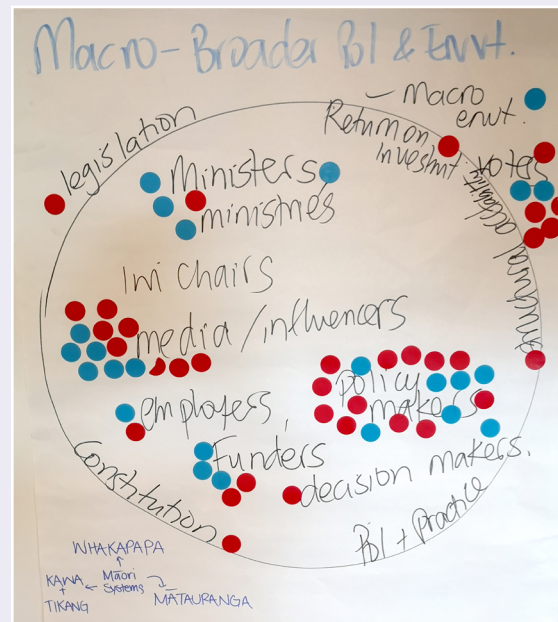 Macro-Broader Pol & Envt.
– Macro
envt.
legislation
Return on
Investmt
voters
Ministers
ministries
Iwi chairs
media/influencers
policy
makers
employers,
Funders
decision makers.
Constitution
Pol + Practice
WHAKAPAPA
KAWA
+
TIKANG
Māori
Systems
MATAURANGA